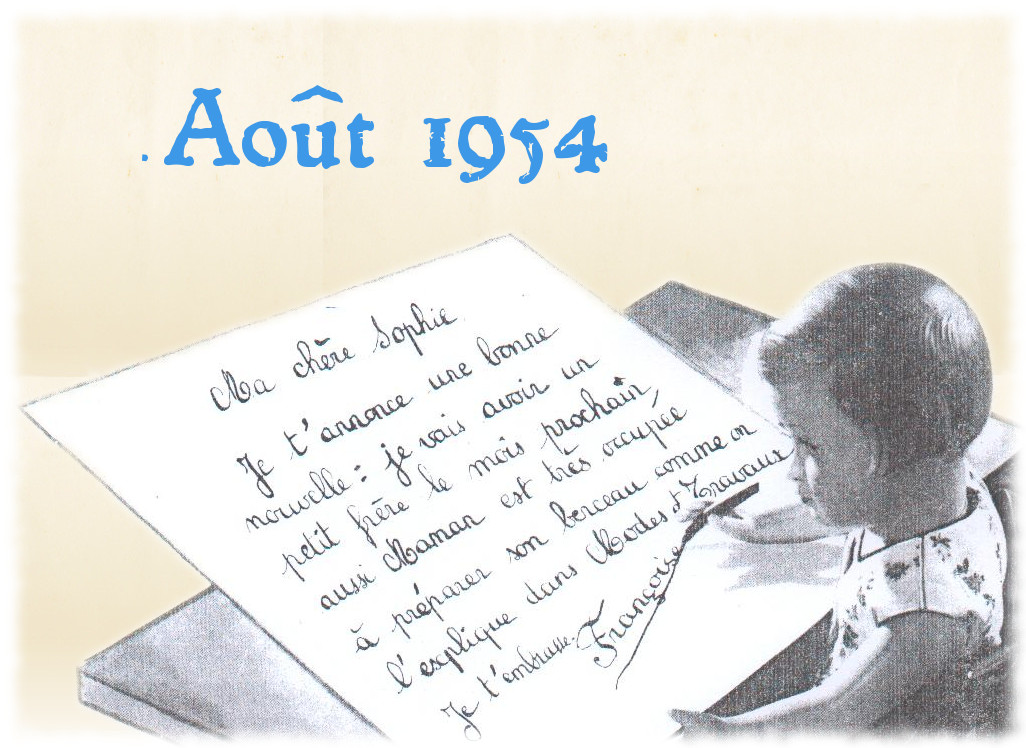 . Août 1954
Ma chère Sophie
Je t'annonce une bonne
nouvelle : je vais avoir un
petit frère le mois prochain,
aussi Maman est très occupée
à préparer son berceau comme on
l'explique dans Modes et Travaux
Je t'embrasse.
Françoise